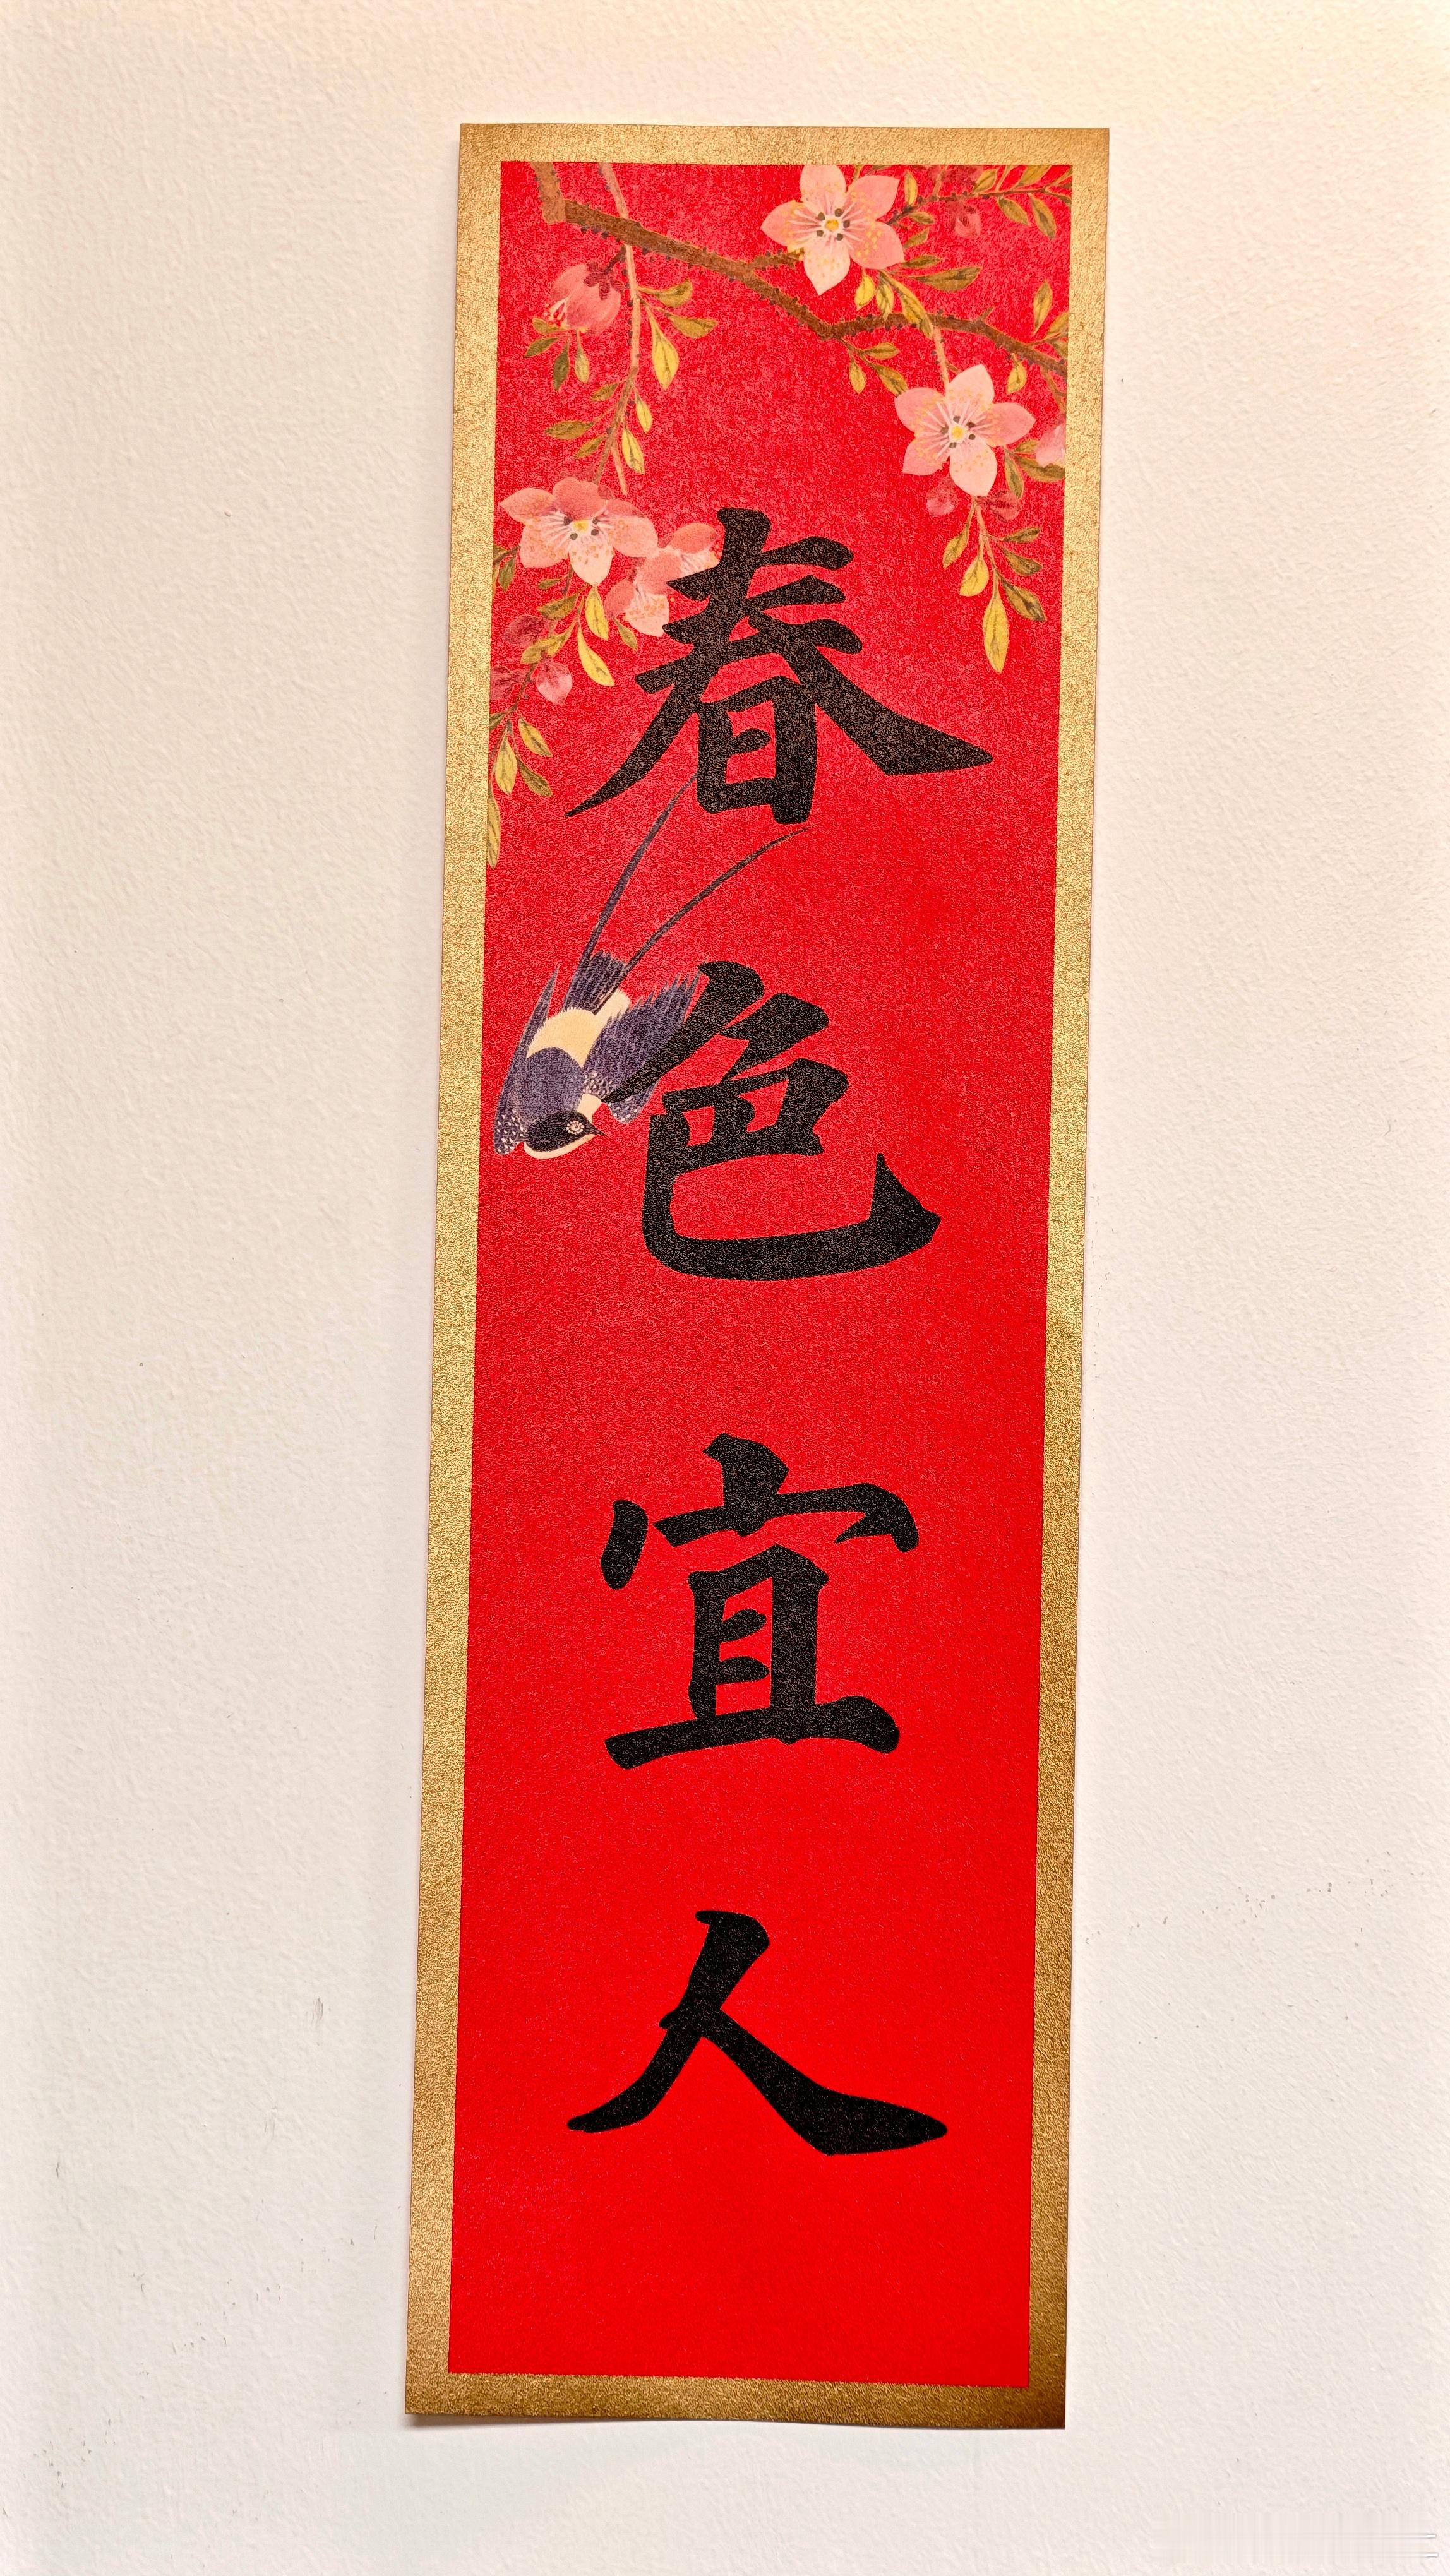 春色宜人